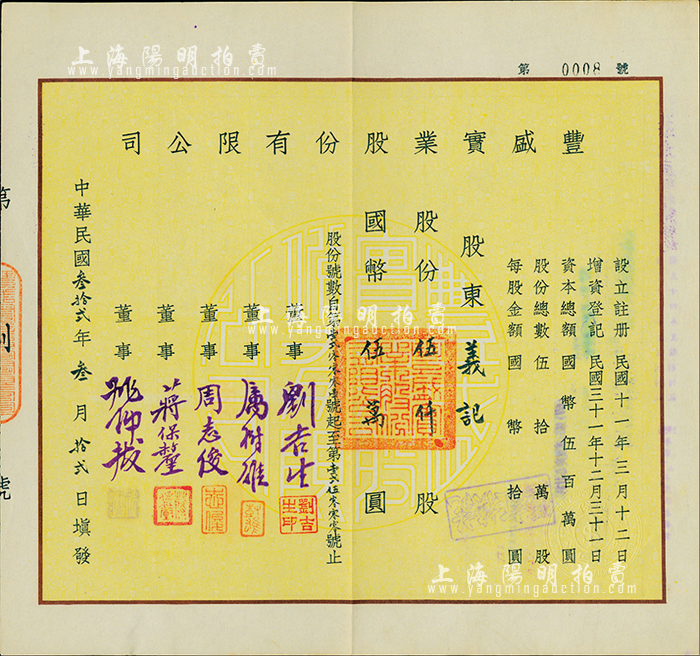 上海陽明拍賣
www.yangmingauction.com
第 0008 號
豐盛實業股份有限公司
設立註册 民國十一年三月十二日
增資登記 民國三十一年十二月三十一日
資本總額 國幣伍百萬圓
股份總數 伍拾萬股
每股金額 國幣拾圓
股東 義記
股份 伍仟 股
國幣 伍萬 圓
號起至第
號止
董事 劉吉生
劉吉生印
董事 厲樹雄
董事 周志俊
董事 蔣保釐
董事 姚仲拔
中華民國叁拾貳年叁月拾貳日填發
第
號
上海陽明拍賣
www.yangmingauction.com